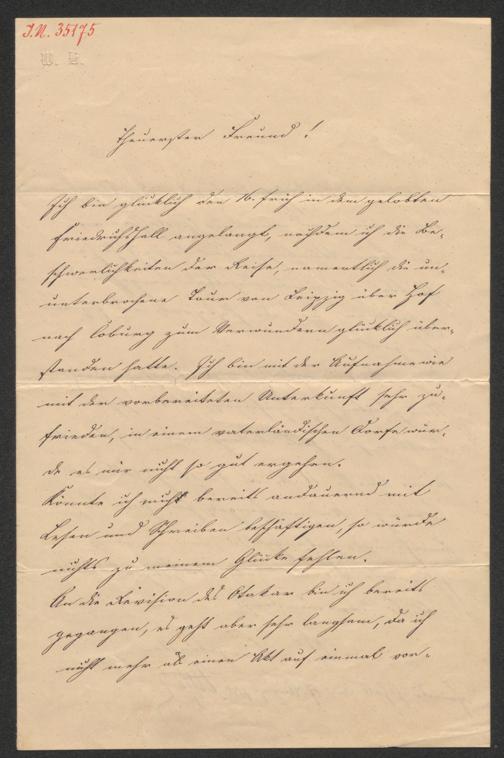 J.N. 35175
W. S.
Theuerster Freund!
Ich bin glücklich den 16. früh in dem gelobten
Friedrichshall angelangt, nachdem ich die Be-
schwerlichkeiten der Reise, namentlich die un-
unterbrochene Tour von Leipzig über Hof
nach Coburg zum Verwundern glücklich über-
standen hatte. Ich bin mit der Aufnahme wie
mit der vorbereiteten Unterkunft sehr zu-
frieden, in einem vaterländischen Dorfe wür-
de es mir nicht so gut ergehen.
Könnte ich mich bereits andauernd mit
Lesen und Schreiben beschäftigen, so würde
nichts zu meinem Glücke fehlen.
An die Revision des Otakar bin ich bereits
gegangen, es geht aber sehr langsam, da ich
nicht mehr als einen Akt auf einmal vor-